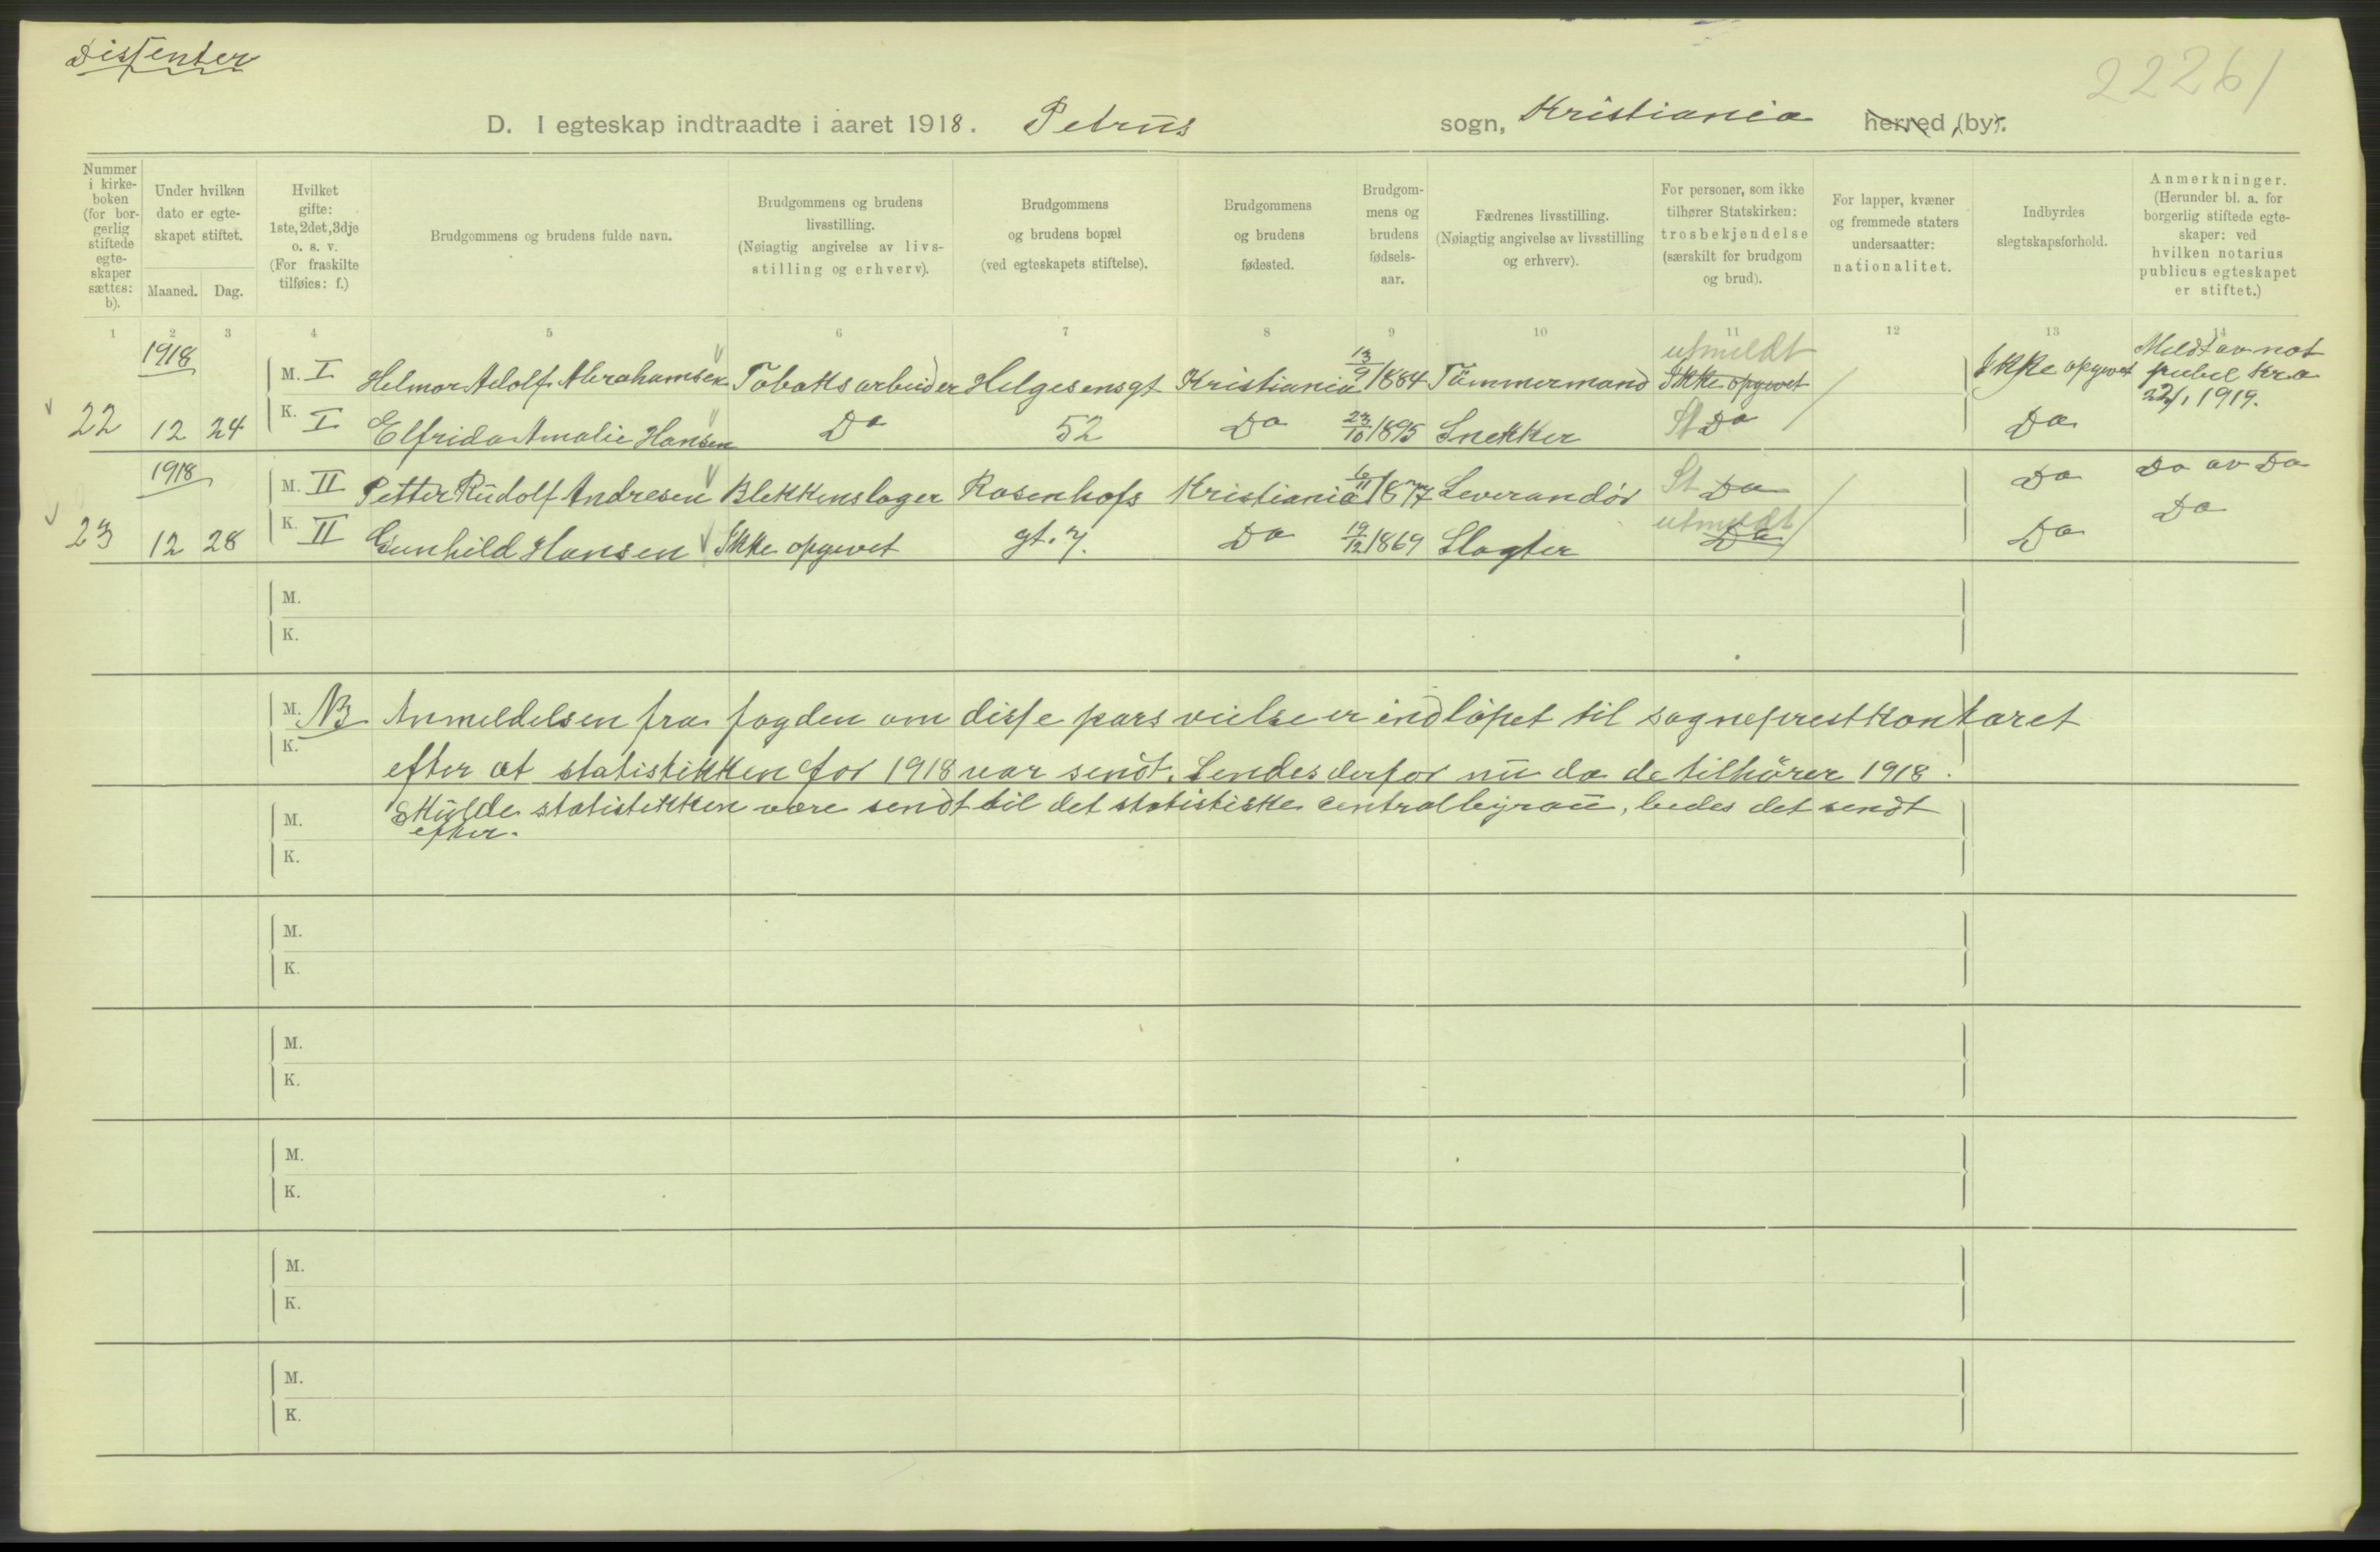 Dissenter
22261
D. I egteskap indtraadte i aaret 1918. Petrus sogn, Kristiania herred, (by).
Nummer i kirke-boken (for bor-gerlig stiftede egte-skaper sættes: b).
Under hvilken dato er egte-skapet stiftet.
Maaned. Dag.
Hvilket gifte: 1ste, 2det, 3dje o. s. v. (For fraskilte tilføies: f.)
Brudgommens og brudens fulde navn.
Brudgommens og brudens livsstilling. (Nøiagtig angivelse av livs-stilling og erhverv).
Brudgommens og brudens bopæl (ved egteskapets stiftelse).
Brudgommens og brudens fødested.
Brudgom-mens og brudens fødsels-aar.
Fædrenes livsstilling. (Nøiagtig angivelse av livsstilling og erhverv).
For personer, som ikke tilhører Statskirken: trosbekjendelse (særskilt for brudgom og brud).
For lapper, kvæner og fremmede staters undersaatter: nationalitet.
Indbyrdes slegtskapsforhold.
Anmerkninger. (Herunder bl. a. for borgerlig stiftede egte-skaper: ved hvilken notarius publicus egteskapet er stiftet.)
1 2 3 4 5 6 7 8 9 10 11 12 13 14
1918 utmeldt Meldt av not
M. I Helmor Adolf Abrahamsen Tobaksarbeider Helgesensgt Kristiania 13/9 1884 Tömmermand Ikke opgivet Ikke opgivet publ Kra
22/1 1919.
22 12 24 K. I Elfrida Amalie Hansen Do 52 Do 23/10 1895 Snekker St Do Do
1918
M. II Petter Rudolf Andresen Blekkenslager Rosenhofs Kristiania 6/11 1877 Leverandör St Do Do Do av Do
utmeldt Do
23 12 28 K. II Gunhild Hansen Ikke opgivet gt. 7. Do 19/12 1869 Slagter Do Do
M.
K.
M. NB Anmeldelsen fra fogden om disse pars vielse er indlöpet til sogneprestkontoret
K.
efter at statistikken for 1918 var sendt. Sendes derfor nu da de tilhörer 1918.
M. Skulde statistikken være sendt til det statistiske centralbyrau, bedes det sendt
efter.
K.
M.
K.
M.
K.
M.
K.
M.
K.
M.
K.